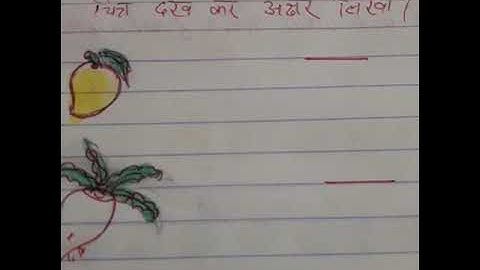 चित्र देख कर अक्षर लिखो।